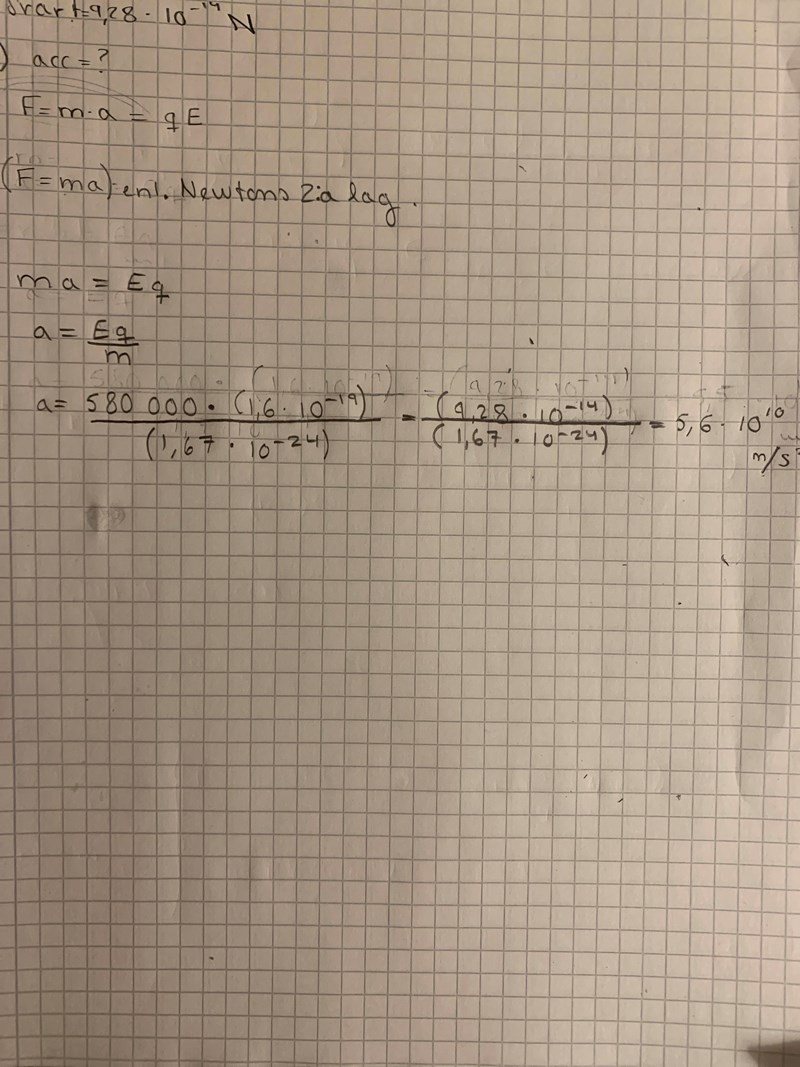 Svar F=9,28 · 10⁻¹⁴ N
) acc = ?
F = m·a = qE
(F = ma) enl. Newtons 2:a lag.
ma = Eq
a = Eq/m
a = 580 000 · (1,6 · 10⁻¹⁹)/(1,67 · 10⁻²⁴) = (9,28 · 10⁻¹⁴)/(1,67 · 10⁻²⁴) = 5,6 · 10¹⁰
m/s²